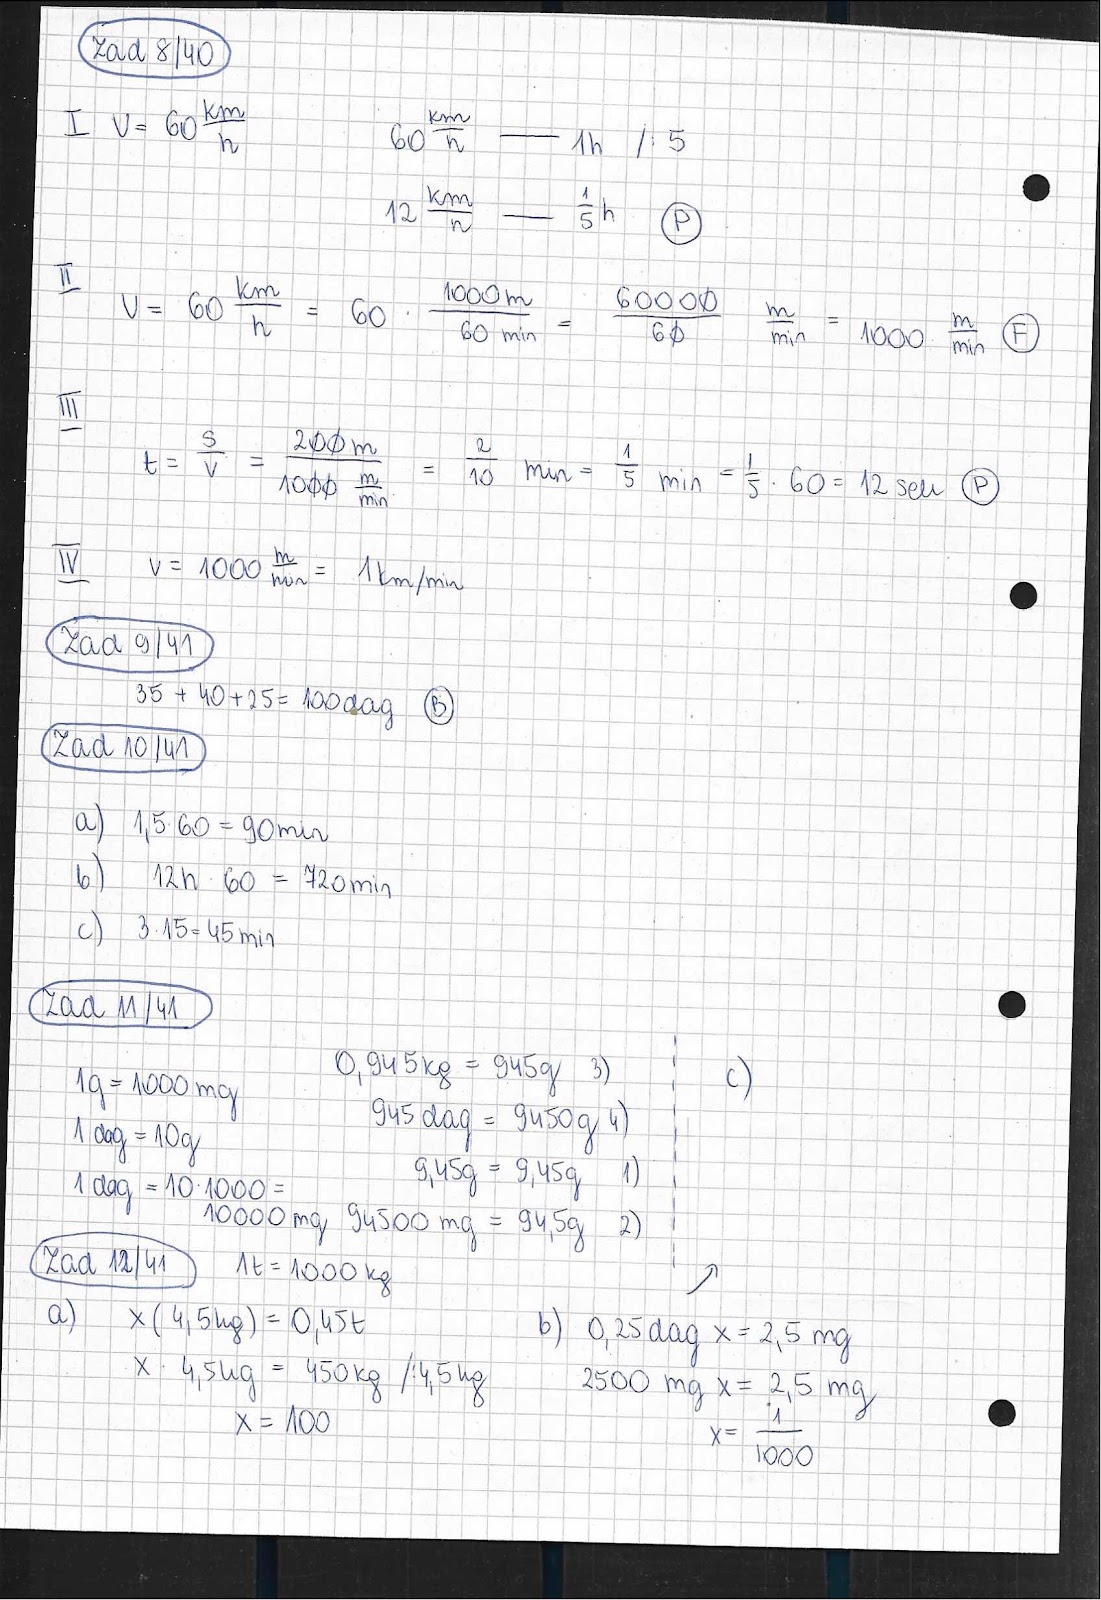 Zad 8/40
I V = 60 km/h 60 km/h — 1h /: 5
12 km/h — 1/5 h P
II V = 60 km/h = 60 · 1000m/60 min = 60000/60 m/min = 1000 m/min F
III t = s/v = 200m/1000 m/min = 2/10 min = 1/5 min = 1/5 · 60 = 12 sek P
IV v = 1000 m/min = 1km/min
Zad 9/41
35 + 40 + 25 = 100dag B
Zad 10/41
a) 1,5·60 = 90min
b) 12h · 60 = 720min
c) 3·15 = 45min
Zad 11/41
1g = 1000mg
1 dag = 10g
1 dag = 10·1000 =
10000mg
0,945kg = 945g 3)
945dag = 9450g 4)
9,45g = 9,45g 1)
94500mg = 94,5g 2)
c)
Zad 12/41 1t = 1000kg
a) x (4,5kg) = 0,45t
x · 4,5kg = 450kg /:4,5kg
x = 100
b) 0,25dag x = 2,5mg
2500mg x = 2,5mg
x = 1/1000